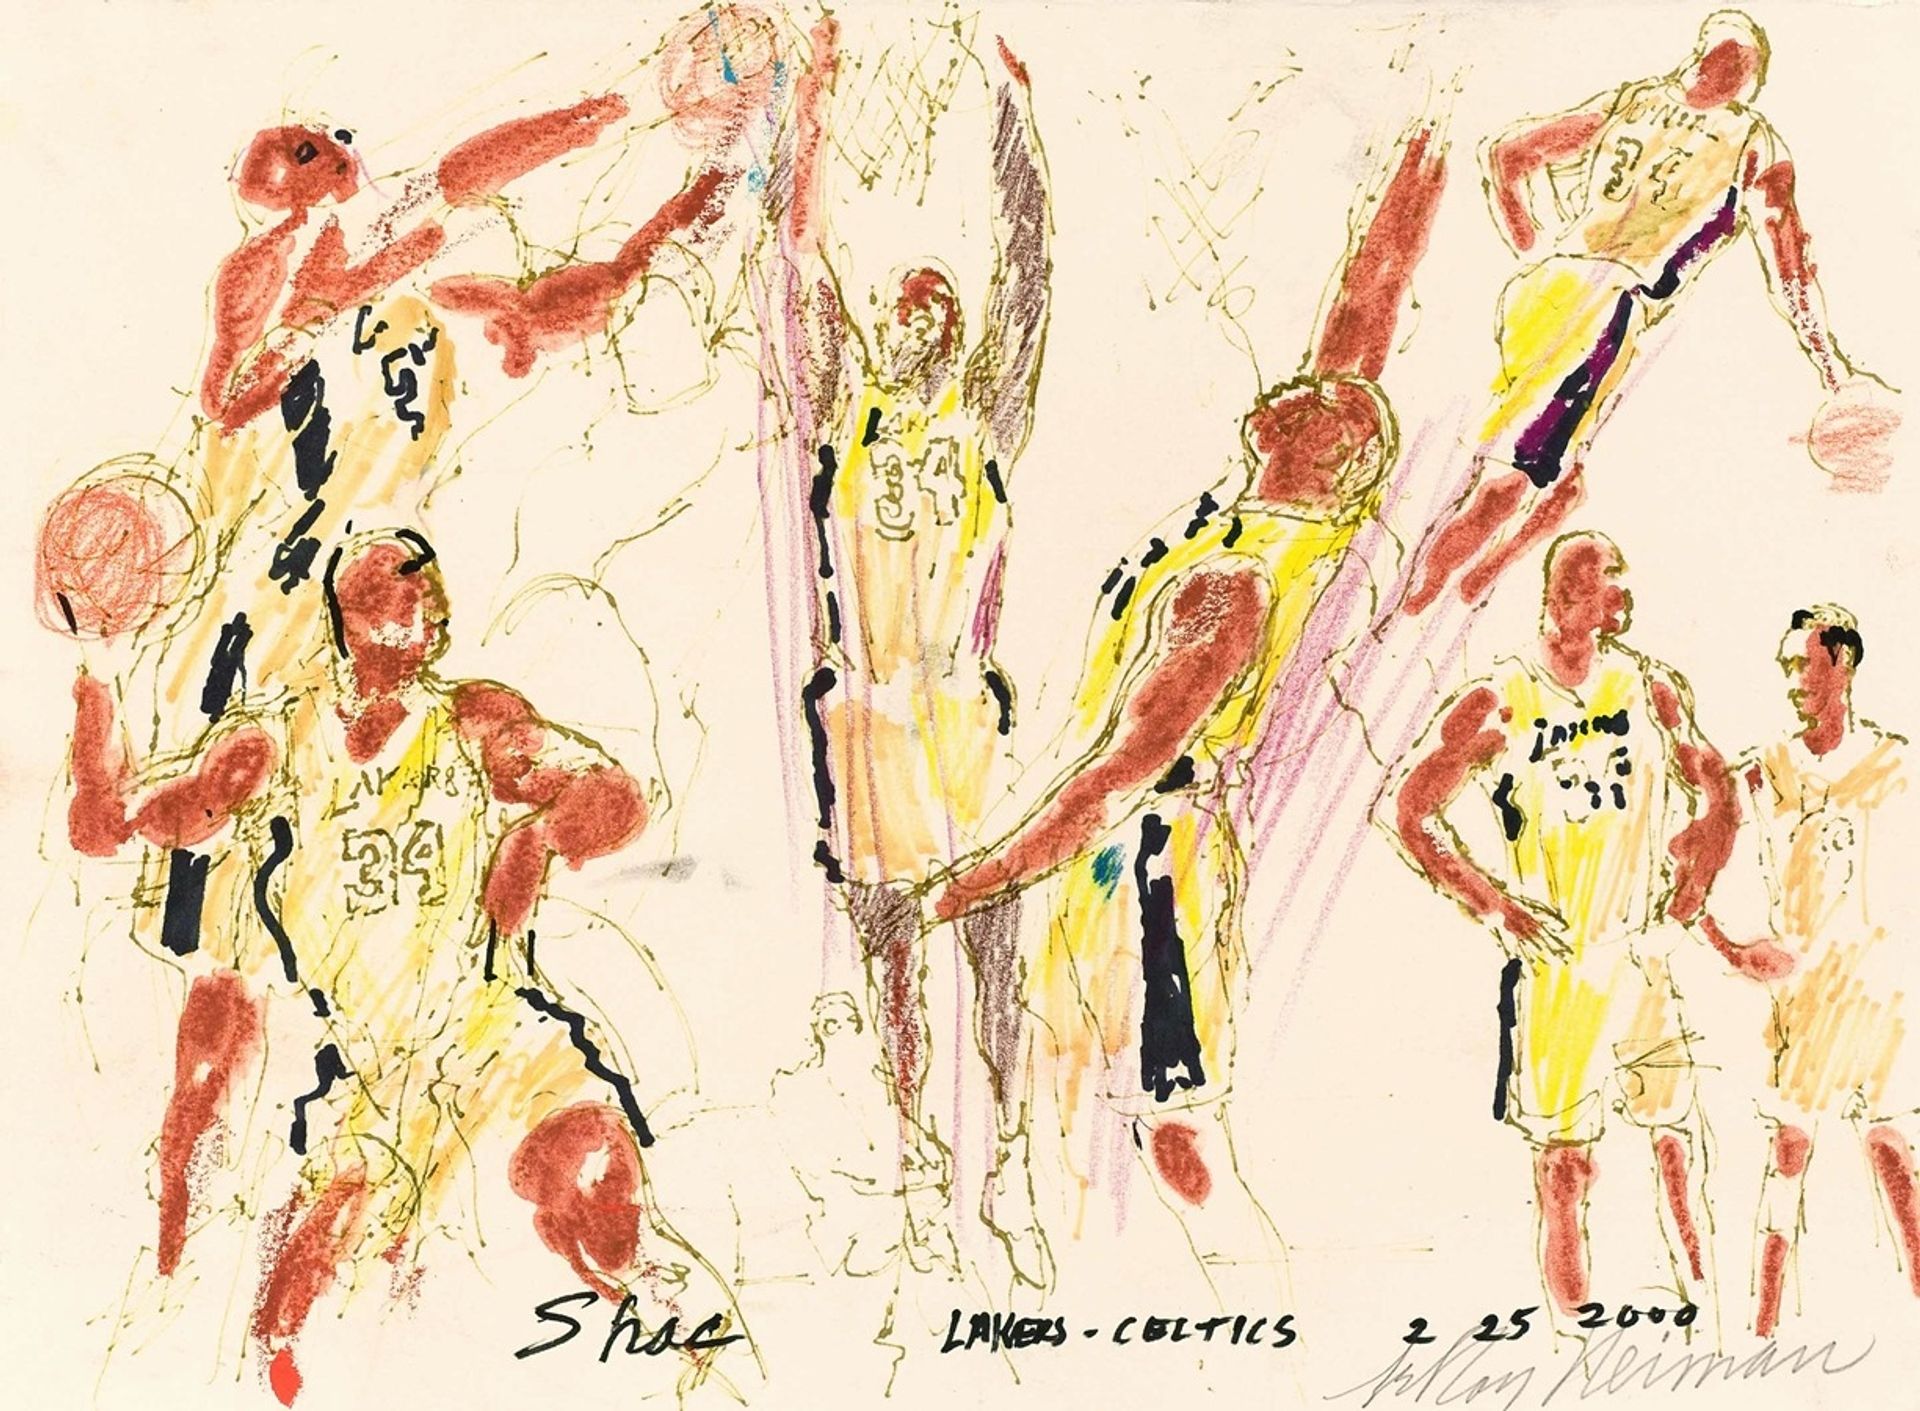 O'NEAL
34
LAK
34
LAKERS
34
Shac
LAKERS - CELTICS
2 25 2000
LeRoy Neiman